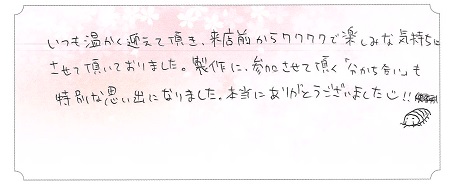 いつも温かく迎えて頂き、来店前からワクワクで楽しみな気持ちに
させて頂いておりました。製作に、参加させて頂く「分かち合い」も
特別な思い出になりました。本当にありがとうございました!!